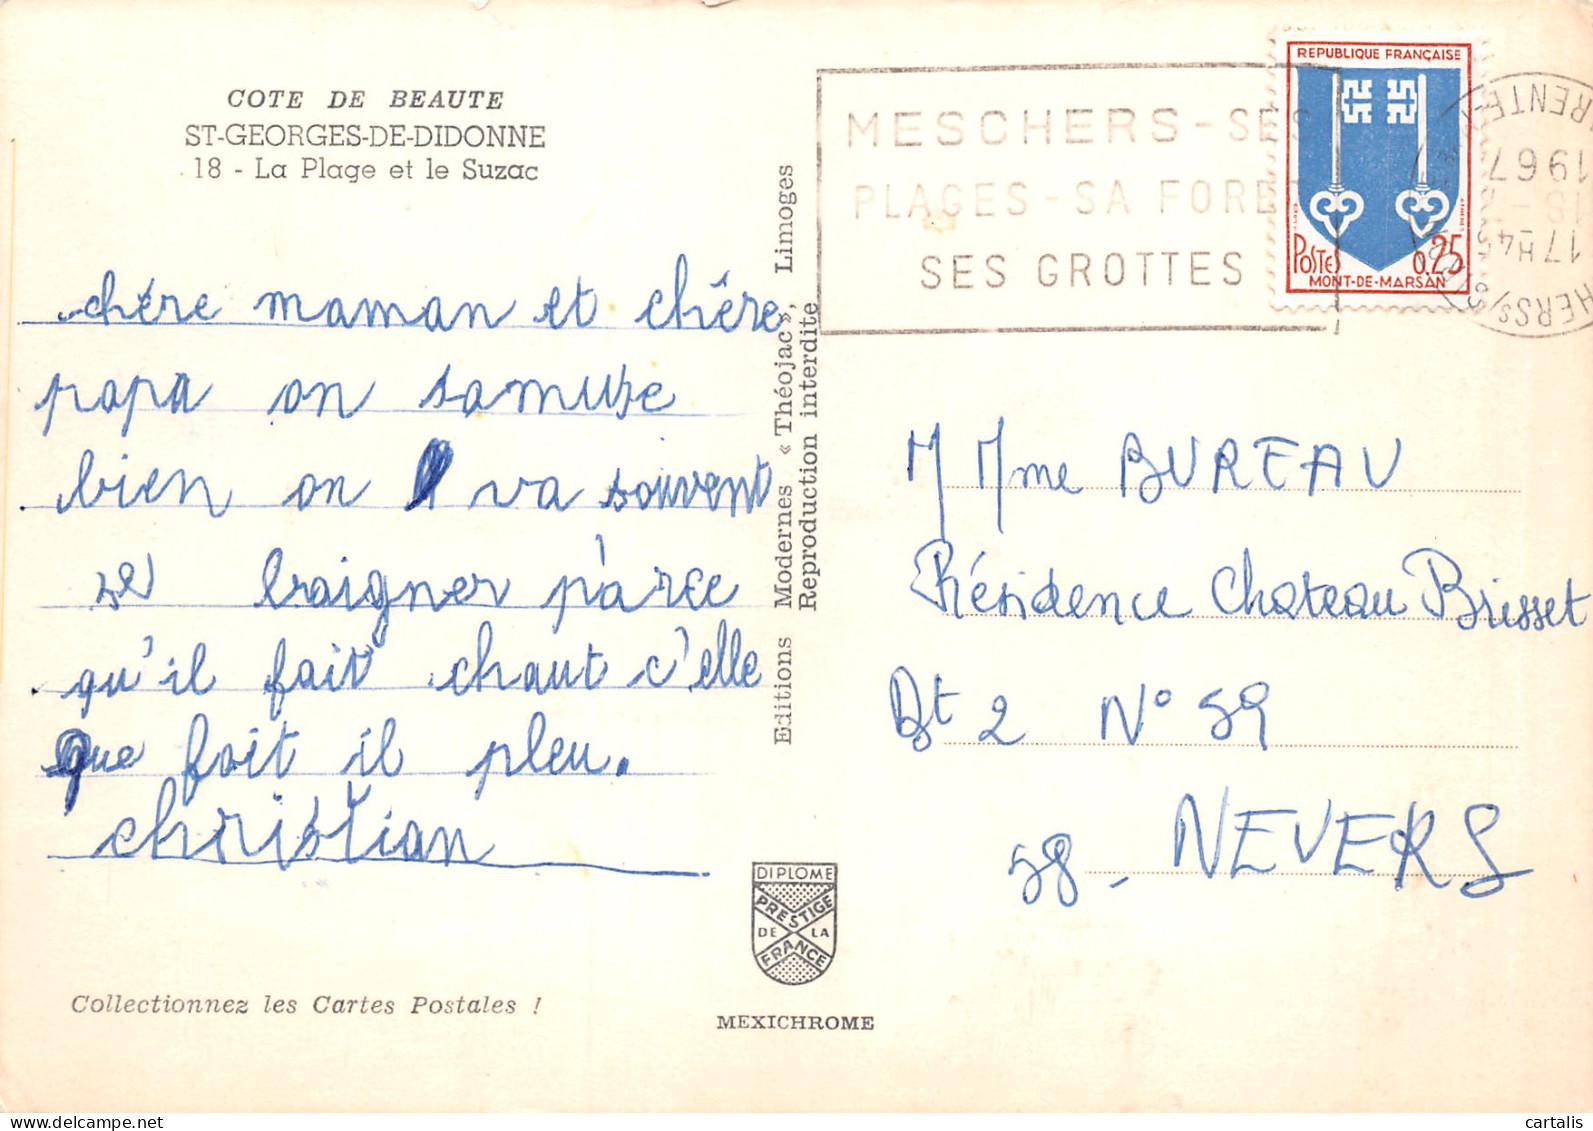 COTE DE BEAUTE
ST-GEORGES-DE-DIDONNE
18 - La Plage et le Suzac
chére maman et chêre
papa on samuse
bien on va souvent
se baigner p'arce
qu'il fait chaut c'elle
que foit il pleu.
christian
Collectionnez les Cartes Postales !
Editions Modernes « Théojac », Limoges
Reproduction interdite
DIPLOME
PRESTIGE
DE LA
FRANCE
MEXICHROME
MESCHERS - SES
PLAGES - SA FORET
SES GROTTES
REPUBLIQUE FRANÇAISE
POSTES 0,25
MONT-DE-MARSAN
17H45
18-7
1967
M Mme BUREAU
Résidence Chateau Brisset
Bt 2 N° 59
58 - NEVERS
cartalis | delcampe.net